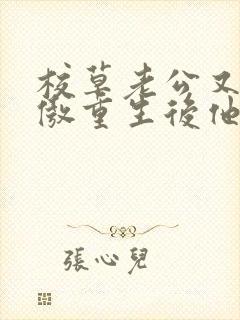 校草老公又
傲重生後他
張心兒